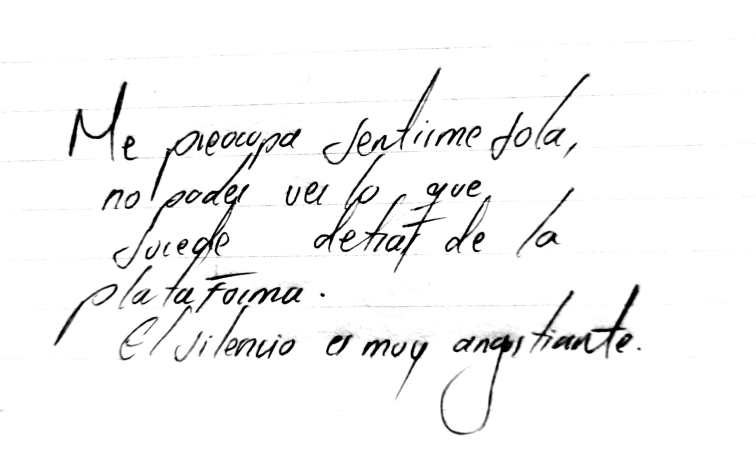 Me preocupa sentirme sola,
no poder ver lo que
sucede detrás de la
plataforma.
El silencio es muy angustiante.